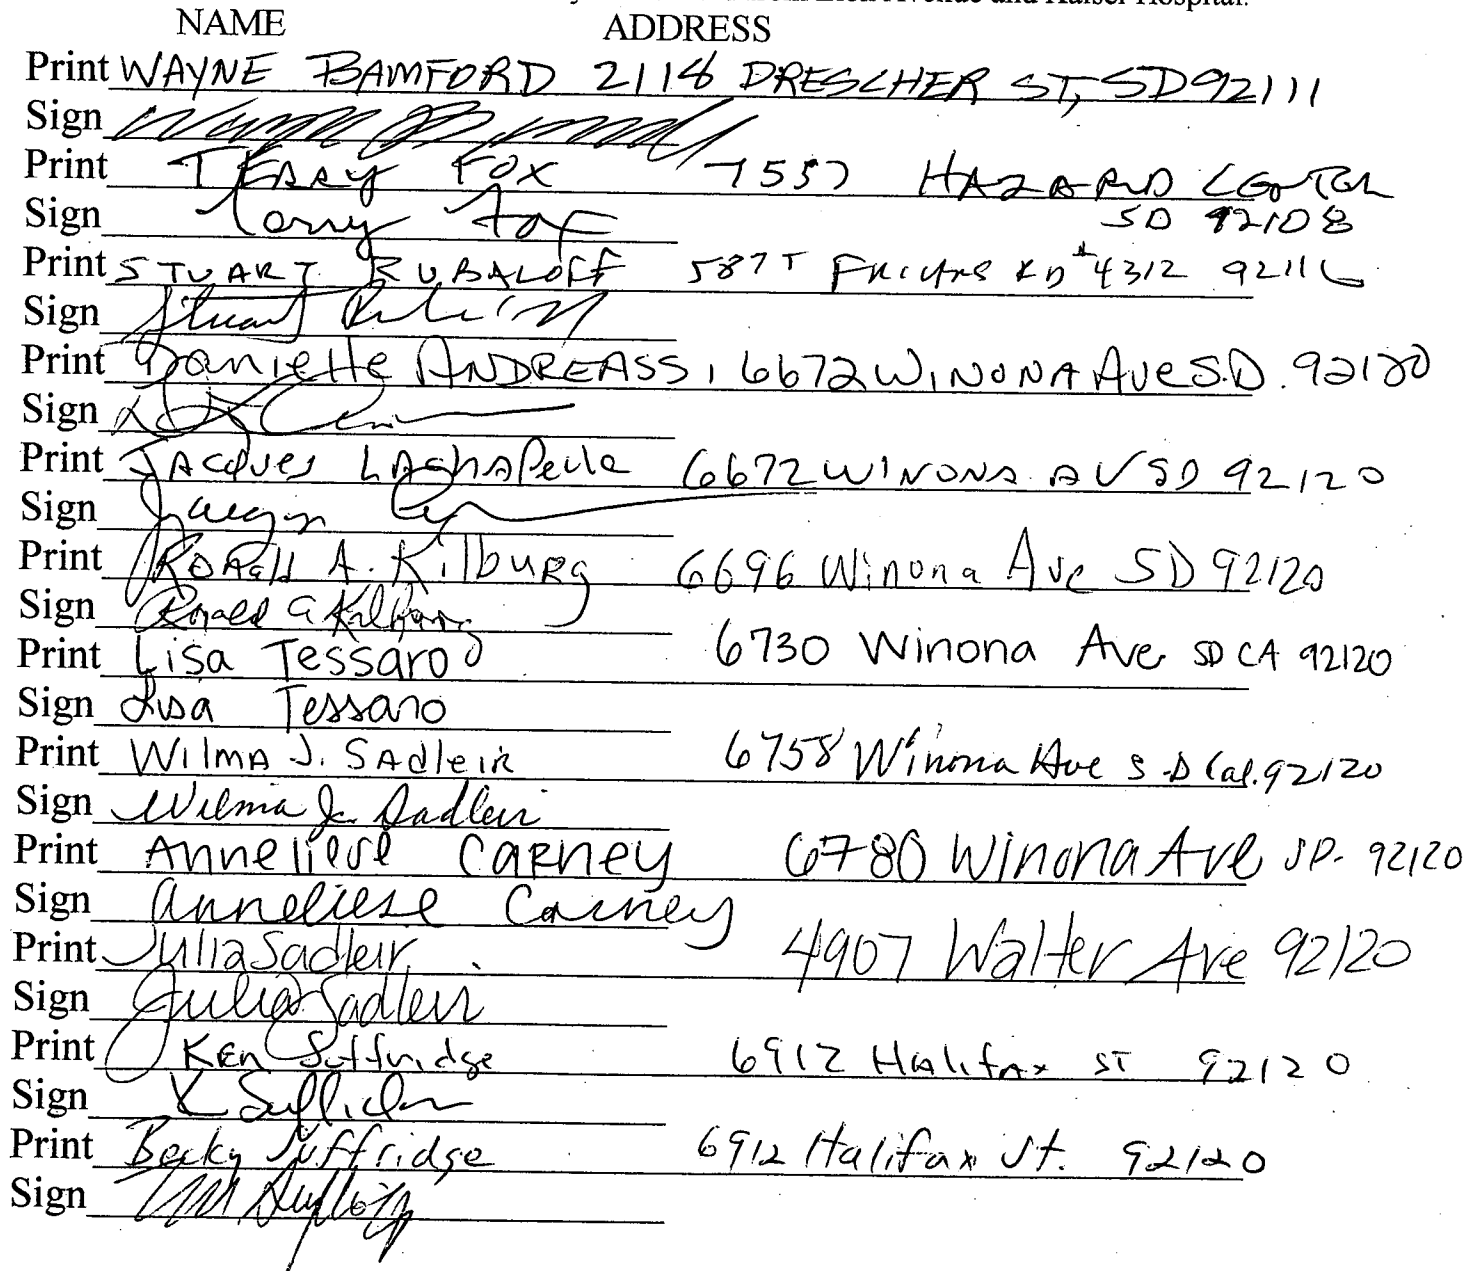 Avenue and Kaiser Hospital.
NAME ADDRESS
Print WAYNE BAMFORD 2114 DRESCHER ST, SD 92111
Sign
Print TERRY FOX 7557 HAZARD CENTER
Sign Terry Fox SD 92108
Print STUART RUBALOFF 5875 FRIARS RD #4312 9211
Sign Stuart
Print Danielle ANDREASSI 6672 WINONA Ave S.D. 92120
Sign
Print JACQUES LAchApelle 6672 WINONA AV SD 92120
Sign
Print RonAld A. KilbuRg 6696 Winona Ave SD 92120
Sign Ronald A Kilburg
Print Lisa Tessaro 6730 Winona Ave SD CA 92120
Sign Lisa Tessaro
Print WilmA J. SAdleiR 6758 Winona Ave S.D Cal. 92120
Sign Wilma J. Sadleir
Print Anneliese Carney 6780 Winona Ave SD. 92120
Sign Anneliese Carney
Print Julia Sadleir 4907 Walter Ave 92120
Sign Julia Sadleir
Print KEn Suffridge 6912 HAlifAx ST 92120
Sign K Suffridge
Print Becky Suffridge 6912 Halifax St. 92120
Sign